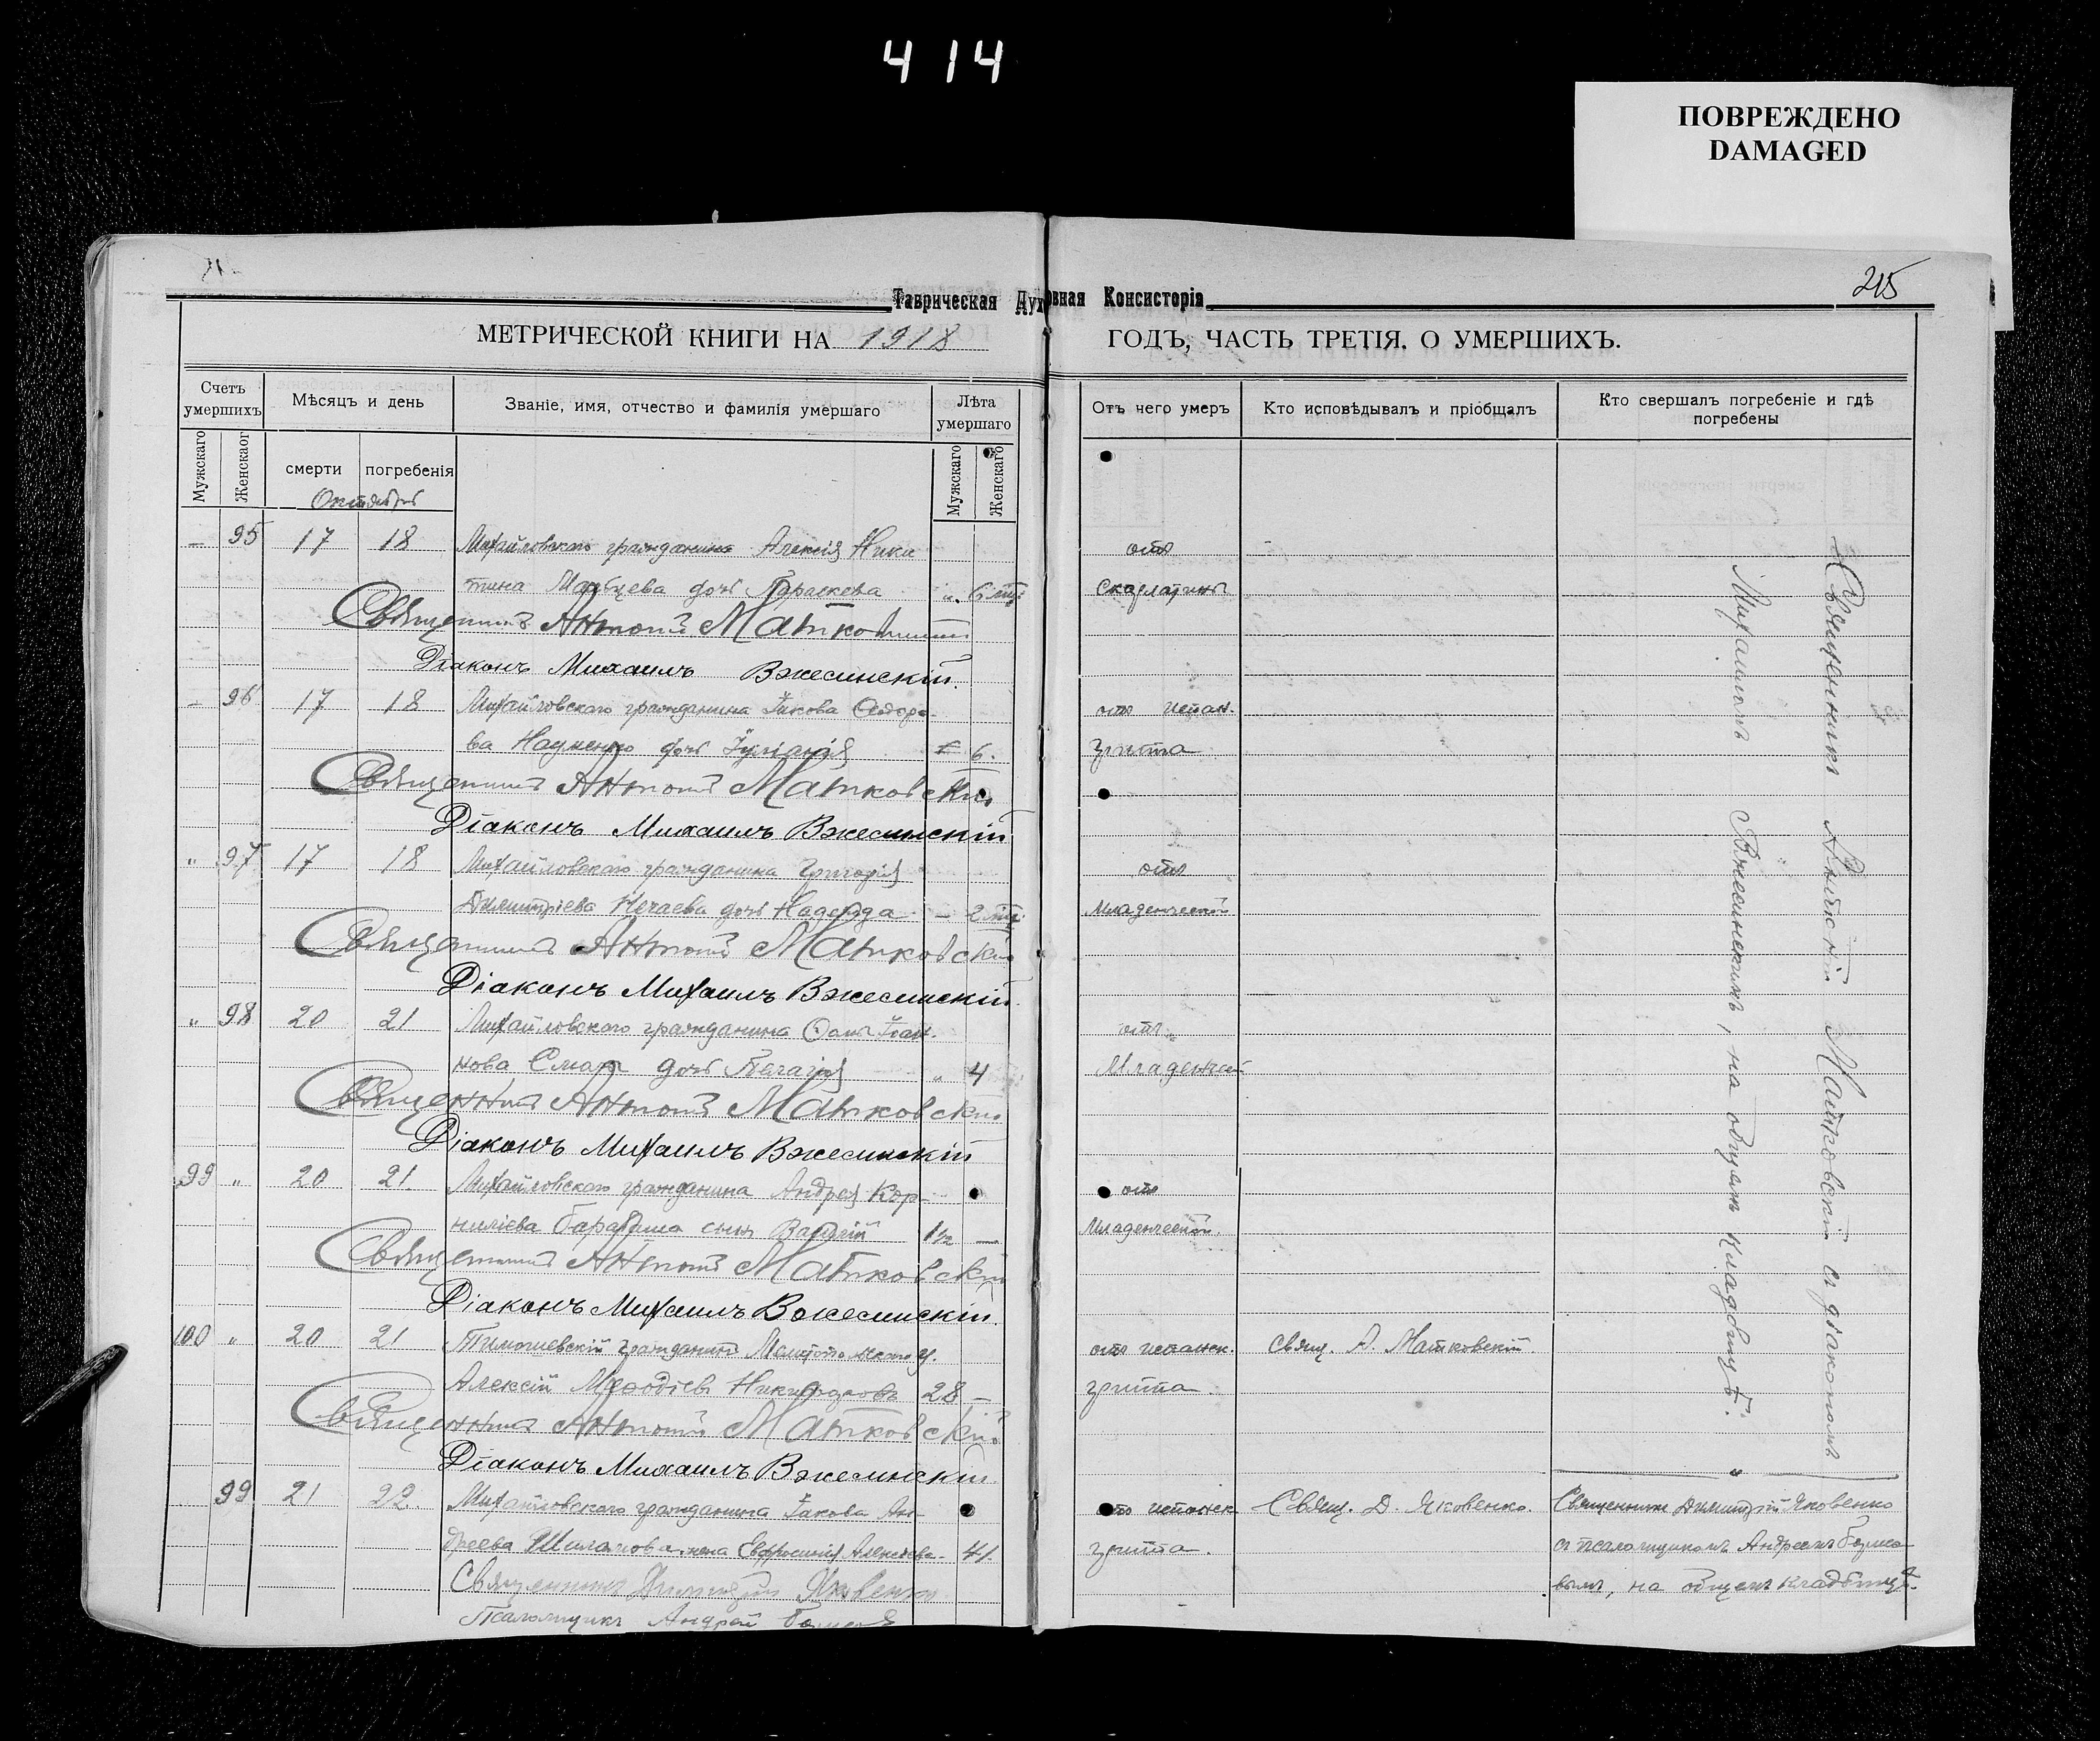 414
ПОВРЕЖДЕНО
DAMAGED
215
Таврическая Духовная Консисторія
МЕТРИЧЕСКОЙ КНИГИ НА 1918 ГОДЪ, ЧАСТЬ ТРЕТІЯ, О УМЕРШИХЪ.
Счетъ умершихъ
Мѣсяцъ и день
Званіе, имя, отчество и фамилія умершаго
Лѣта умершаго
Отъ чего умеръ
Кто исповѣдывалъ и пріобщалъ
Кто свершалъ погребеніе и гдѣ погребены
Мужскаго
Женскаго
смерти
погребенія
Мужскаго
Женскаго
Октября
— 95 17 18 Михайловскаго гражданина Алексія Ники отъ
тина дочь Параскева „ 6 мц. Скарлатины
Священникъ Антоній Матковскій
Діаконъ Михаилъ Вжесинскій.
— 96 17 18 Михайловскаго гражданина Іакова Ѳеодоро- отъ испан.
ва Науменко дочь Іуліанія 6. гриппа
Священникъ Антоній Матковскій
Діаконъ Михаилъ Вжесинскій
„ 97 17 18 Михайловскаго гражданина Григорія отъ
Димитріева Нечаева дочь Надежда — 2 мц. Младенческой
Священникъ Антоній Матковскій
Діаконъ Михаилъ Вжесинскій.
„ 98 20 21 Михайловскаго гражданина Іоан- отъ
нова дочь Пелагія „ 4 Младенческой
Священникъ Антоній Матковскій
Діаконъ Михаилъ Вжесинскій
99 „ 20 21. Михайловскаго гражданина Андрея Кор- отъ
ниліева Барабаша сынъ 1½ — Младенческой.
Священникъ Антоній Матковскій
Діаконъ Михаилъ Вжесинскій.
100 „ 20 21 Тимошевскій гражданинъ Мелитопольскаго у. отъ испанск. Свящ. А. Матковскій.
Алексій Меѳодіевъ 28 — гриппа
Священникъ Антоній Матковскій
Діаконъ Михаилъ Вжесинскій.
99 21 22. Михайловскаго гражданина Іакова Ан- отъ испанск. Свящ. Д. Яковенко. Священникъ Димитрій Яковенко
дреева жена Евфросинія Алексѣева 41. гриппа. съ псаломщикомъ Андреемъ
Священникъ Димитрій Яковенко на общемъ кладбищѣ.
Псаломщикъ Андрей
Священникъ Антоній Матковскій съ діакономъ
Михаиломъ Вжесинскимъ, на общемъ кладбищѣ.